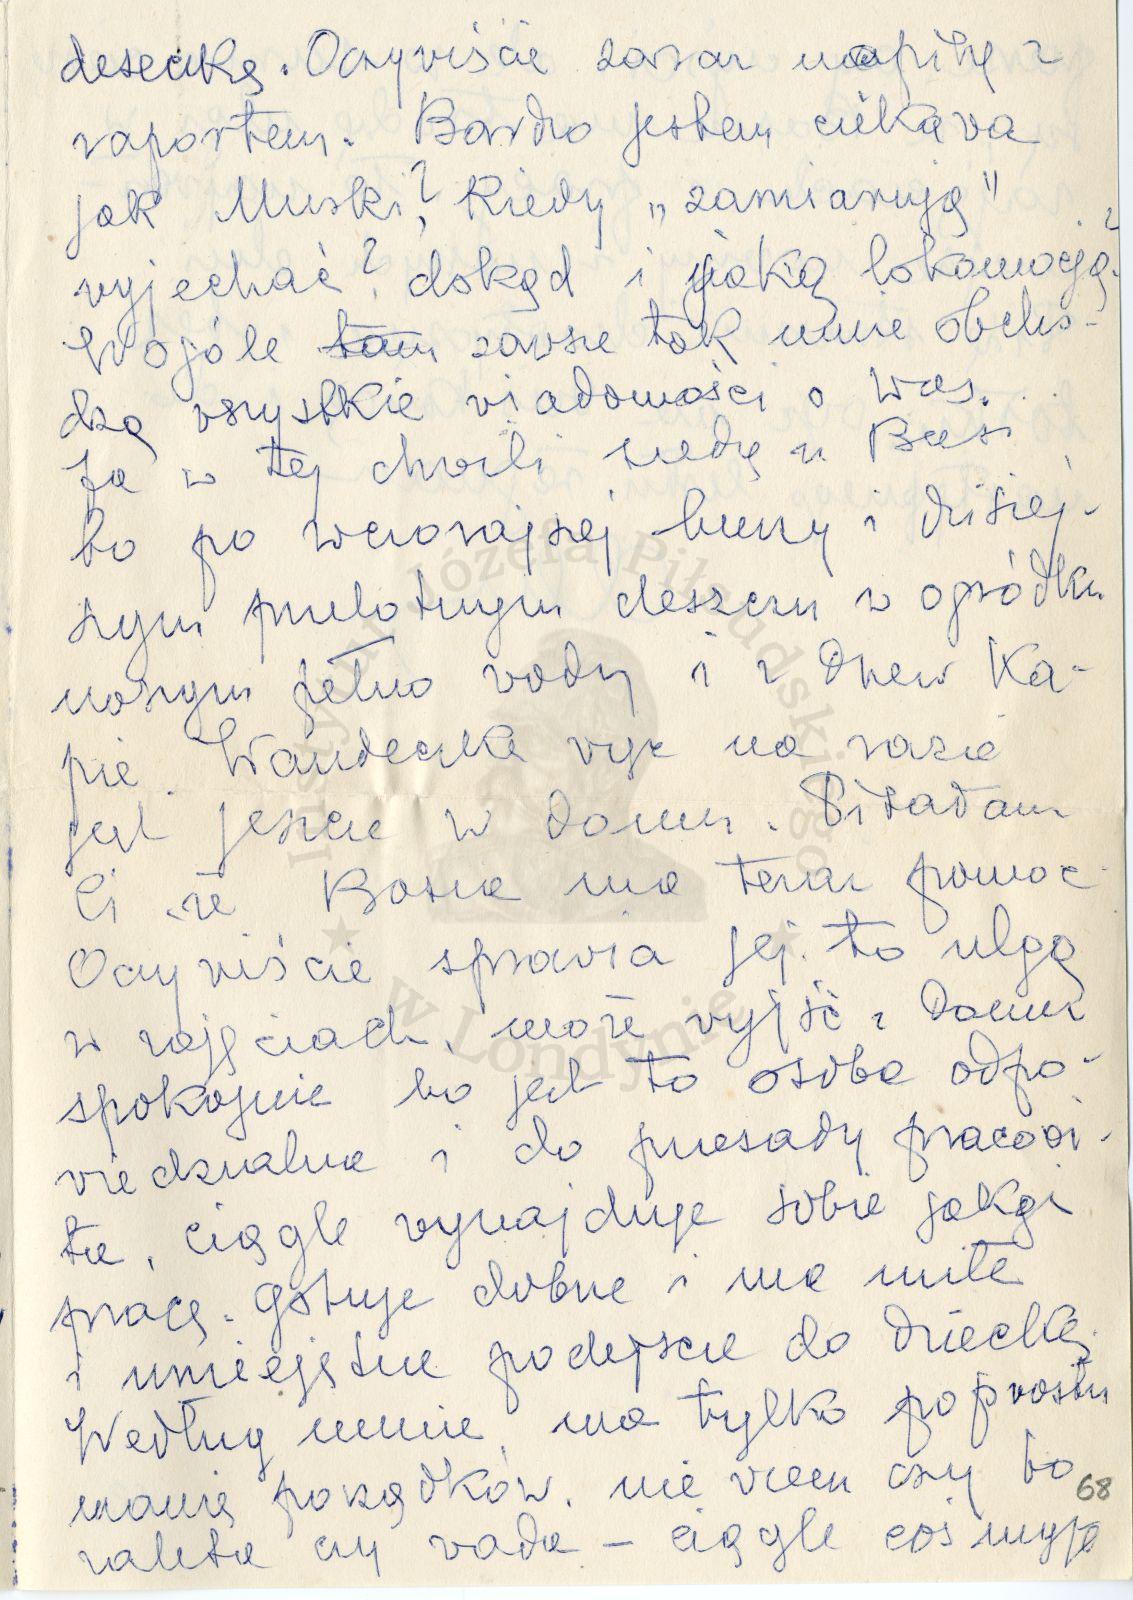 deseczkę. Oczywiście zaraz napiszę z
raportem. Bardzo jestem ciekawa
jak Muski? Kiedy „zamiarują"
wyjechać? dokąd i jaką lokomocją?
Wogóle tam zawsze tak mnie obcho-
dzą wszystkie wiadomości o Was.
Ja w tej chwili siedzę u Basi
bo po wczorajszej burzy i dzisiej-
szym przelotnym deszczu w ogródku
naszym pełno wody i z drzew ka-
pie. Wandeczka więc na razie
jest jeszcze w domu. Pisałam
Ci że Basia ma teraz pomoc
Oczywiście sprawia jej to ulgę
w zajęciach, może wyjść z domu
spokojnie bo jest to osoba odpo-
wiedzialna i do przesady pracowi-
ta, ciągle wynajduje sobie jakąś
pracę. Gotuje dobrze i ma miłe
i umiejętne podejście do dziecka.
Według mnie, ma tylko poprostu
manię porządków, nie wiem czy to
zaleta czy wada – ciągle coś myje
68
Instytut Józefa Piłsudskiego
w Londynie